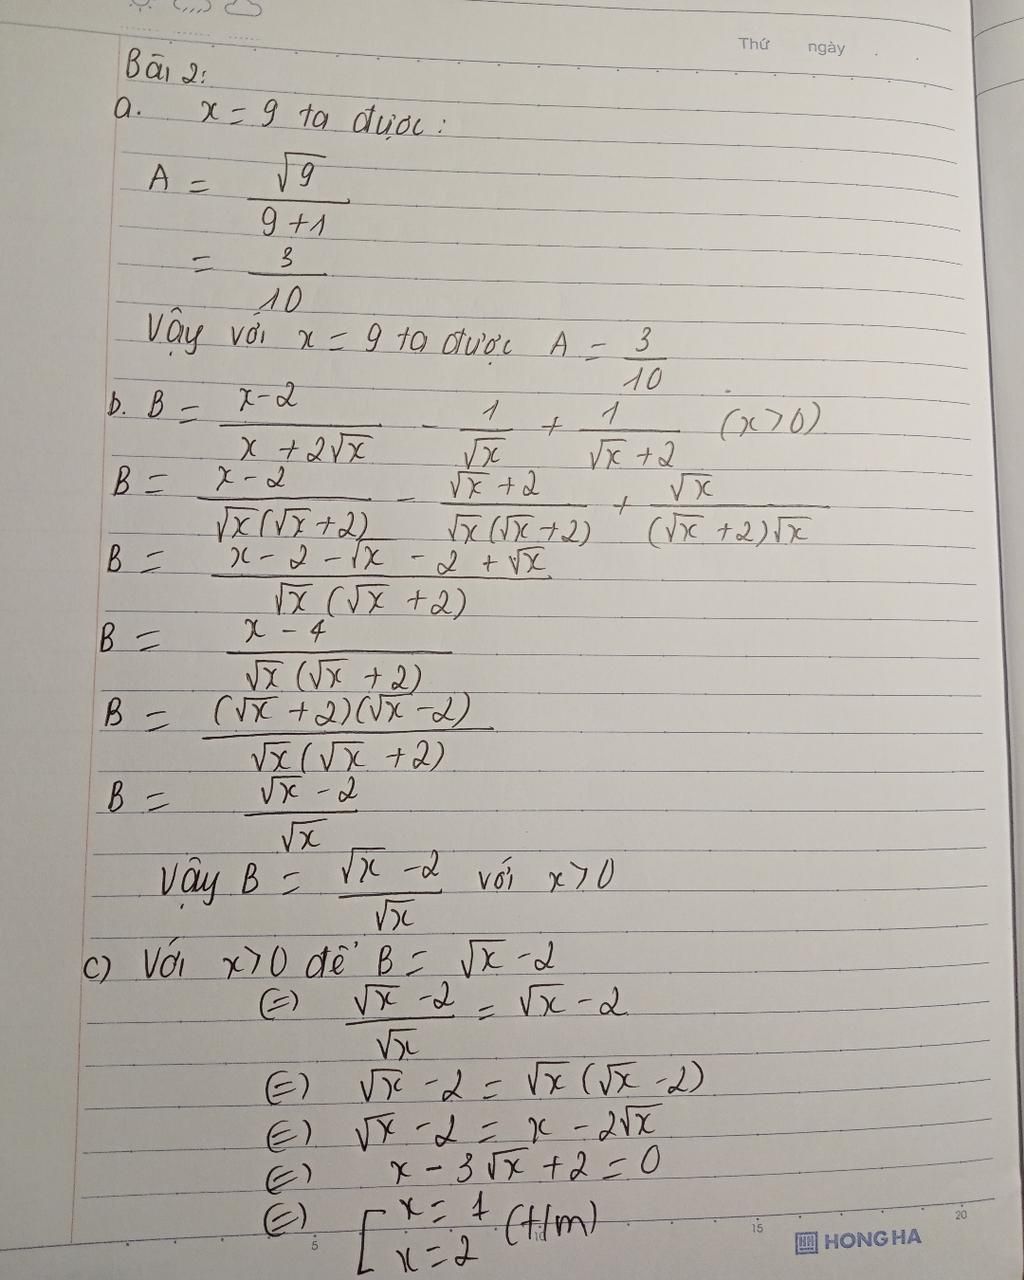 Thứ ngày .
Bài 2:
a. x = 9 ta được :
A = √9 / (9 + 1)
= 3 / 10
Vậy với x = 9 ta được A = 3/10
b. B = (x - 2)/(x + 2√x) - 1/√x + 1/(√x + 2) (x > 0)
B = (x - 2)/(√x(√x + 2)) - (√x + 2)/(√x(√x + 2)) + √x/((√x + 2)√x)
B = (x - 2 - √x - 2 + √x)/(√x(√x + 2))
B = (x - 4)/(√x(√x + 2))
B = (√x + 2)(√x - 2)/(√x(√x + 2))
B = (√x - 2)/√x
Vậy B = (√x - 2)/√x với x > 0
c) Với x > 0 để B = √x - 2
(=) (√x - 2)/√x = √x - 2
(=) √x - 2 = √x(√x - 2)
(=) √x - 2 = x - 2√x
(=) x - 3√x + 2 = 0
(=) [ x = 1
x = 2 (t/m)
5 10 15 20
HONG HA